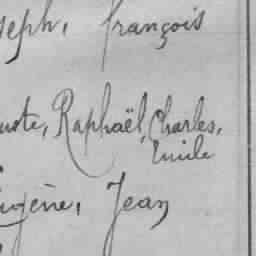 seph, françois
uste, Raphaël, Charles,
Emile
ugène, Jean